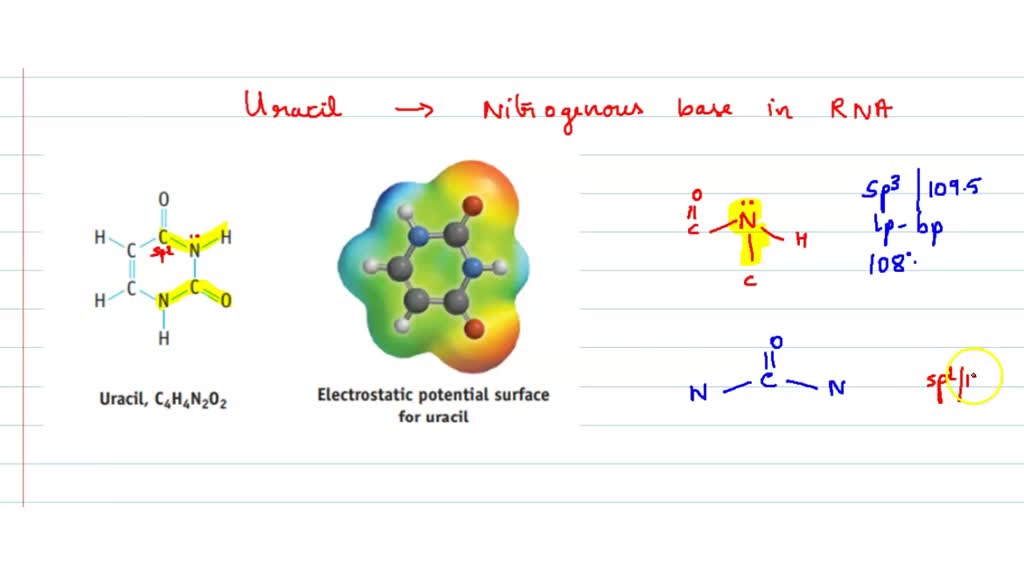 Uracil → Nitrogenous base in RNA
O
H C N H
C
sp²
C
H N C O
H
Uracil, C₄H₄N₂O₂
Electrostatic potential surface
for uracil
O
C N H
C
sp³ | 109.5
lp - bp
108°
O
N C N
sp²/1